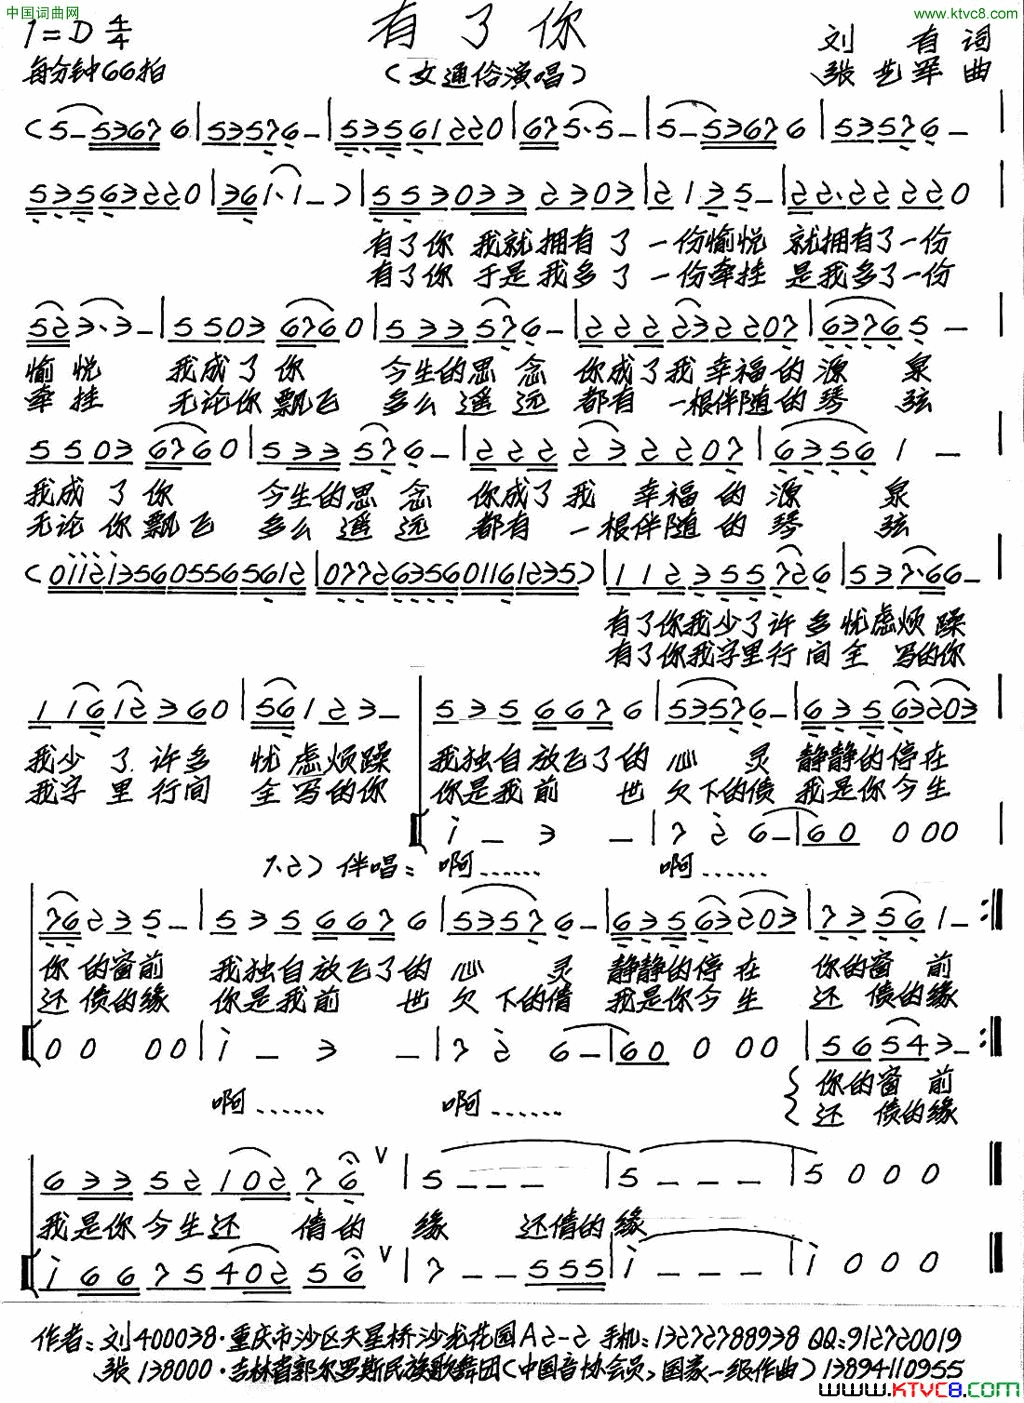 中国词曲网
www.ktvc8.com
1=D 4/4
有了你
刘有词
每分钟66拍
(女通俗演唱)
张艺军曲
(5-5367 6|5357 6-|53561220|67 5·5-|5-5367 6|5357 6-|
53563220|361·1-)|5530332303|2135-|22·22220|
有了你 我就拥有了一份愉悦 就拥有了一份
有了你 于是我多了一份牵挂 是我多了一份
523·3-|55036760|533576-|2222322207|63765-|
愉悦 我成了你 今生的思念 你成了我幸福的源泉
牵挂 无论你飘飞 多么遥远 都有一根伴随的琴弦
55036760|533576-|2222322207|63561-|
我成了你 今生的思念 你成了我 幸福的源泉
无论你飘飞 多么遥远 都有一根伴随的琴弦
(0112135605565612|0772635601161235)|112355726|537·66-|
有了你我少了许多忧虑烦躁
有了你我字里行间全写的你
11612360|56123-|5356676|53576-|63563203|
我少了许多 忧虑烦躁 我独自放飞了的心灵 静静的停在
我字里行间 全写的你 你是我前世欠下的债 我是你今生
i-3-|7 2 6-|60 000|
1.2) 伴唱: 啊…… 啊……
76235-|5356676|53576-|63563203|73561-:‖
你的窗前 我独自放飞了的心灵 静静的停在 你的窗前
还债的缘 你是我前世欠下的债 我是你今生 还债的缘
00 00|i-3-|7 2 6-|60 0 00|56543-:‖
啊…… 啊……
你的窗前
还债的缘
633521027 6∨|5---|5---|5000‖
我是你今生还债的缘 还债的缘
i667540256∨|7--555|i---|i000‖
作者:刘400038·重庆市沙区天星桥沙龙花园A2-2 手机:13272788938 QQ:912720019
张138000·吉林省郭尔罗斯民族歌舞团(中国音协会员,国家一级作曲)13894110955
www.KTVC8.com